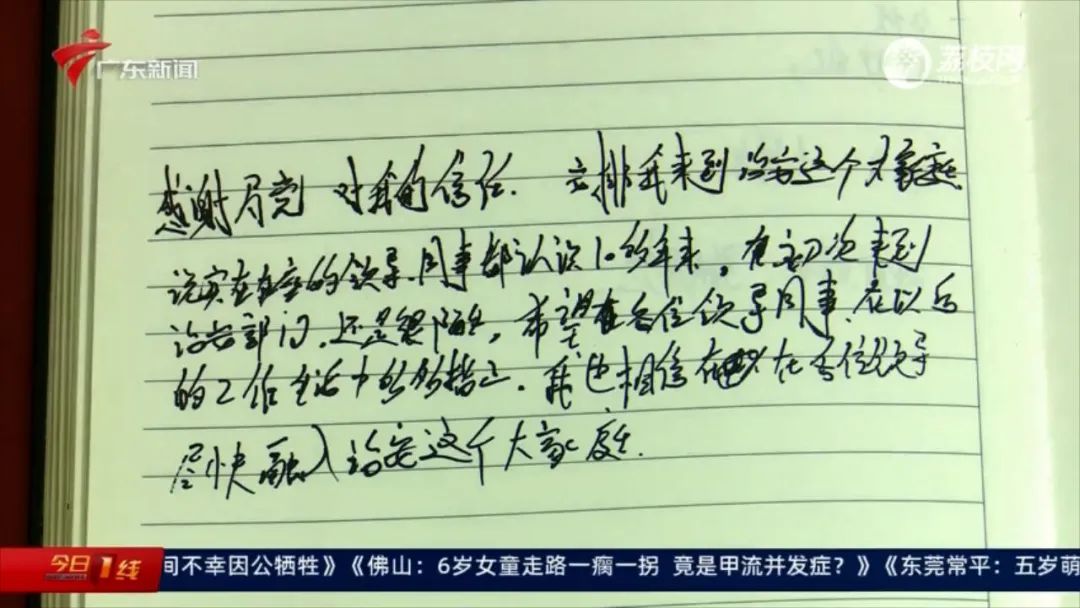 广东新闻
荔枝网
感谢局党 对我的信任. 安排我来到治安这个大家庭
说实在在座的领导、同事都认识10多年来,有初次来到
治安部门,还是很陌生,希望在各位领导同事,在以后
的工作生活中多多指正.我也相信在 在各位领导
尽快融入治安这个大家庭.
今日一线
间不幸因公牺牲》《佛山：6岁女童走路一瘸一拐 竟是甲流并发症？》《东莞常平：五岁萌